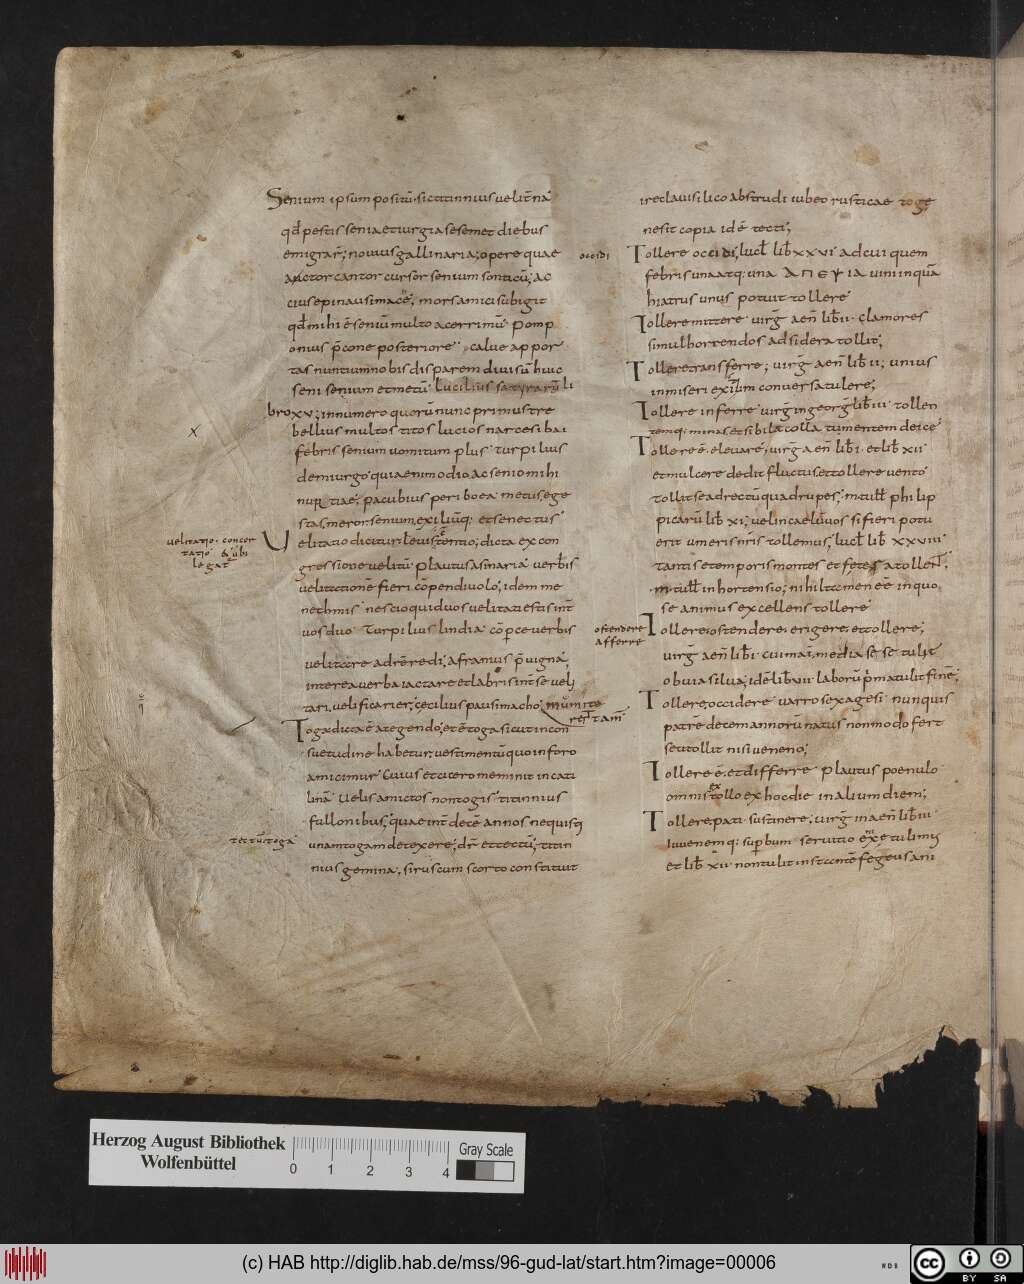 Senium ipsum positū. sic titinnius ueliťna
qđ pestis senia et iurgia sesemet diebus
emigrar̄; nouius gallinaria; opere quae
auctor cantor cursor senium sonticū; ac
cius epinausimacē, mors amici subigit
qđ mihi ē seniū multo acerrimū. pomp
onius p̄cone posteriore. calue appor
tas nuntium nobis disparem diuisū huic
seni senium et metū. lucilius satyrarū li
bro xv; in numero quorū nunc primus tre
bellius multos titos lucios narcesibai
febris senium uomitum plus. turpilius
demiurgo quaenim odio ac senio mihi
nuptiae; pacubius periboea metus, ege
stas, meror, senium, exiliūq; et senectus
velitatio. concer
tatio
legat̄
Velitatio dicitur leuis contentio; dicta ex con
gressione uelitū. plautus asinaria uerbis
uelitationē fieri cōpendi uolo; idem me
nechmis nescio quid uos uelitati estis inť
uos duo. Turpilius lindia cōp̄ce uerbis
uelitare adrē redi; afranius p̄uigna,
interea uerba iactare et labris inť se ueli
tari, uelificarier; cecilius pausimacho, munite
res tam̄
Toga dicta ē a tegendo; et ē toga sicut in con
suetudine habetur; uestimentū quo in foro
amicimur. Cuius et cicero meminit in cati
linā. Uelis amictos non togis. titinnius
fullonibus; quae inť decē annos nequisti
tectū toga
unam togam detexere; dr̄ et tectū; titin
nius gemina. si rus cum scorto constituit
ire clauis ilico abstrudi iubeo rusticae toge
ne sit copia idē tecti;
occidi
Tollere occidi; lucł lib xxvi ad cui quem
febris una atq; una ΑΠΕΨΙΑ uini inquā
hiatrus unus potuit tollere
Tollere mittere. uirḡ aeñ lib ii. Clamores
simul horrendos ad sidera tollit;
Tollere transferre; uirḡ aeñ lib ii; unius
in miseri exitium conuersa tulere;
Tollere inferre uirḡ in georḡ lib iii tollen
temq; minas et sibila colla tumentem deice
Tollere ē. eleuare; uirḡ aeñ lib i. et lib xii
et mulcere dedit fluctus et tollere uento
tollit se adrectū quadrupes; m tull philip
picarū lib xi; uelin caeluos si fieri potu
erit umeris nr̄is tollemus; lucł lib xxviiii
tantis e temporis montes et fetes attollet;
m tull in hortensio; nihil tamen eē in quo
se animus excellens tollere
ostendere
afferre
Tollere, ostendere. erigere. ettollere;
uirḡ aeñ lib i. cui mat̄, media sese tulit
obuia silua; idē lib vii. laborū p̄ma tulit finē;
Tollere, occidere. uarro sexagesi nunquis
patrē decem annorū natus non modo fert
sed tollit nisi ueneno;
Tollere ē. et differre. plautus poenulo
omnis extollo ex hoc die in alium diem;
Tollere, pati. sustinere; uirḡ in aeñ lib iii
Iuuenemq; sup̄bum. seruitio enixe tulimus
et lib xii. non tulit instantē fegeus ani
Herzog August Bibliothek
Wolfenbüttel
0 1 2 3 4
Gray Scale
(c) HAB http://diglib.hab.de/mss/96-gud-lat/start.htm?image=00006
WDB
cc BY SA